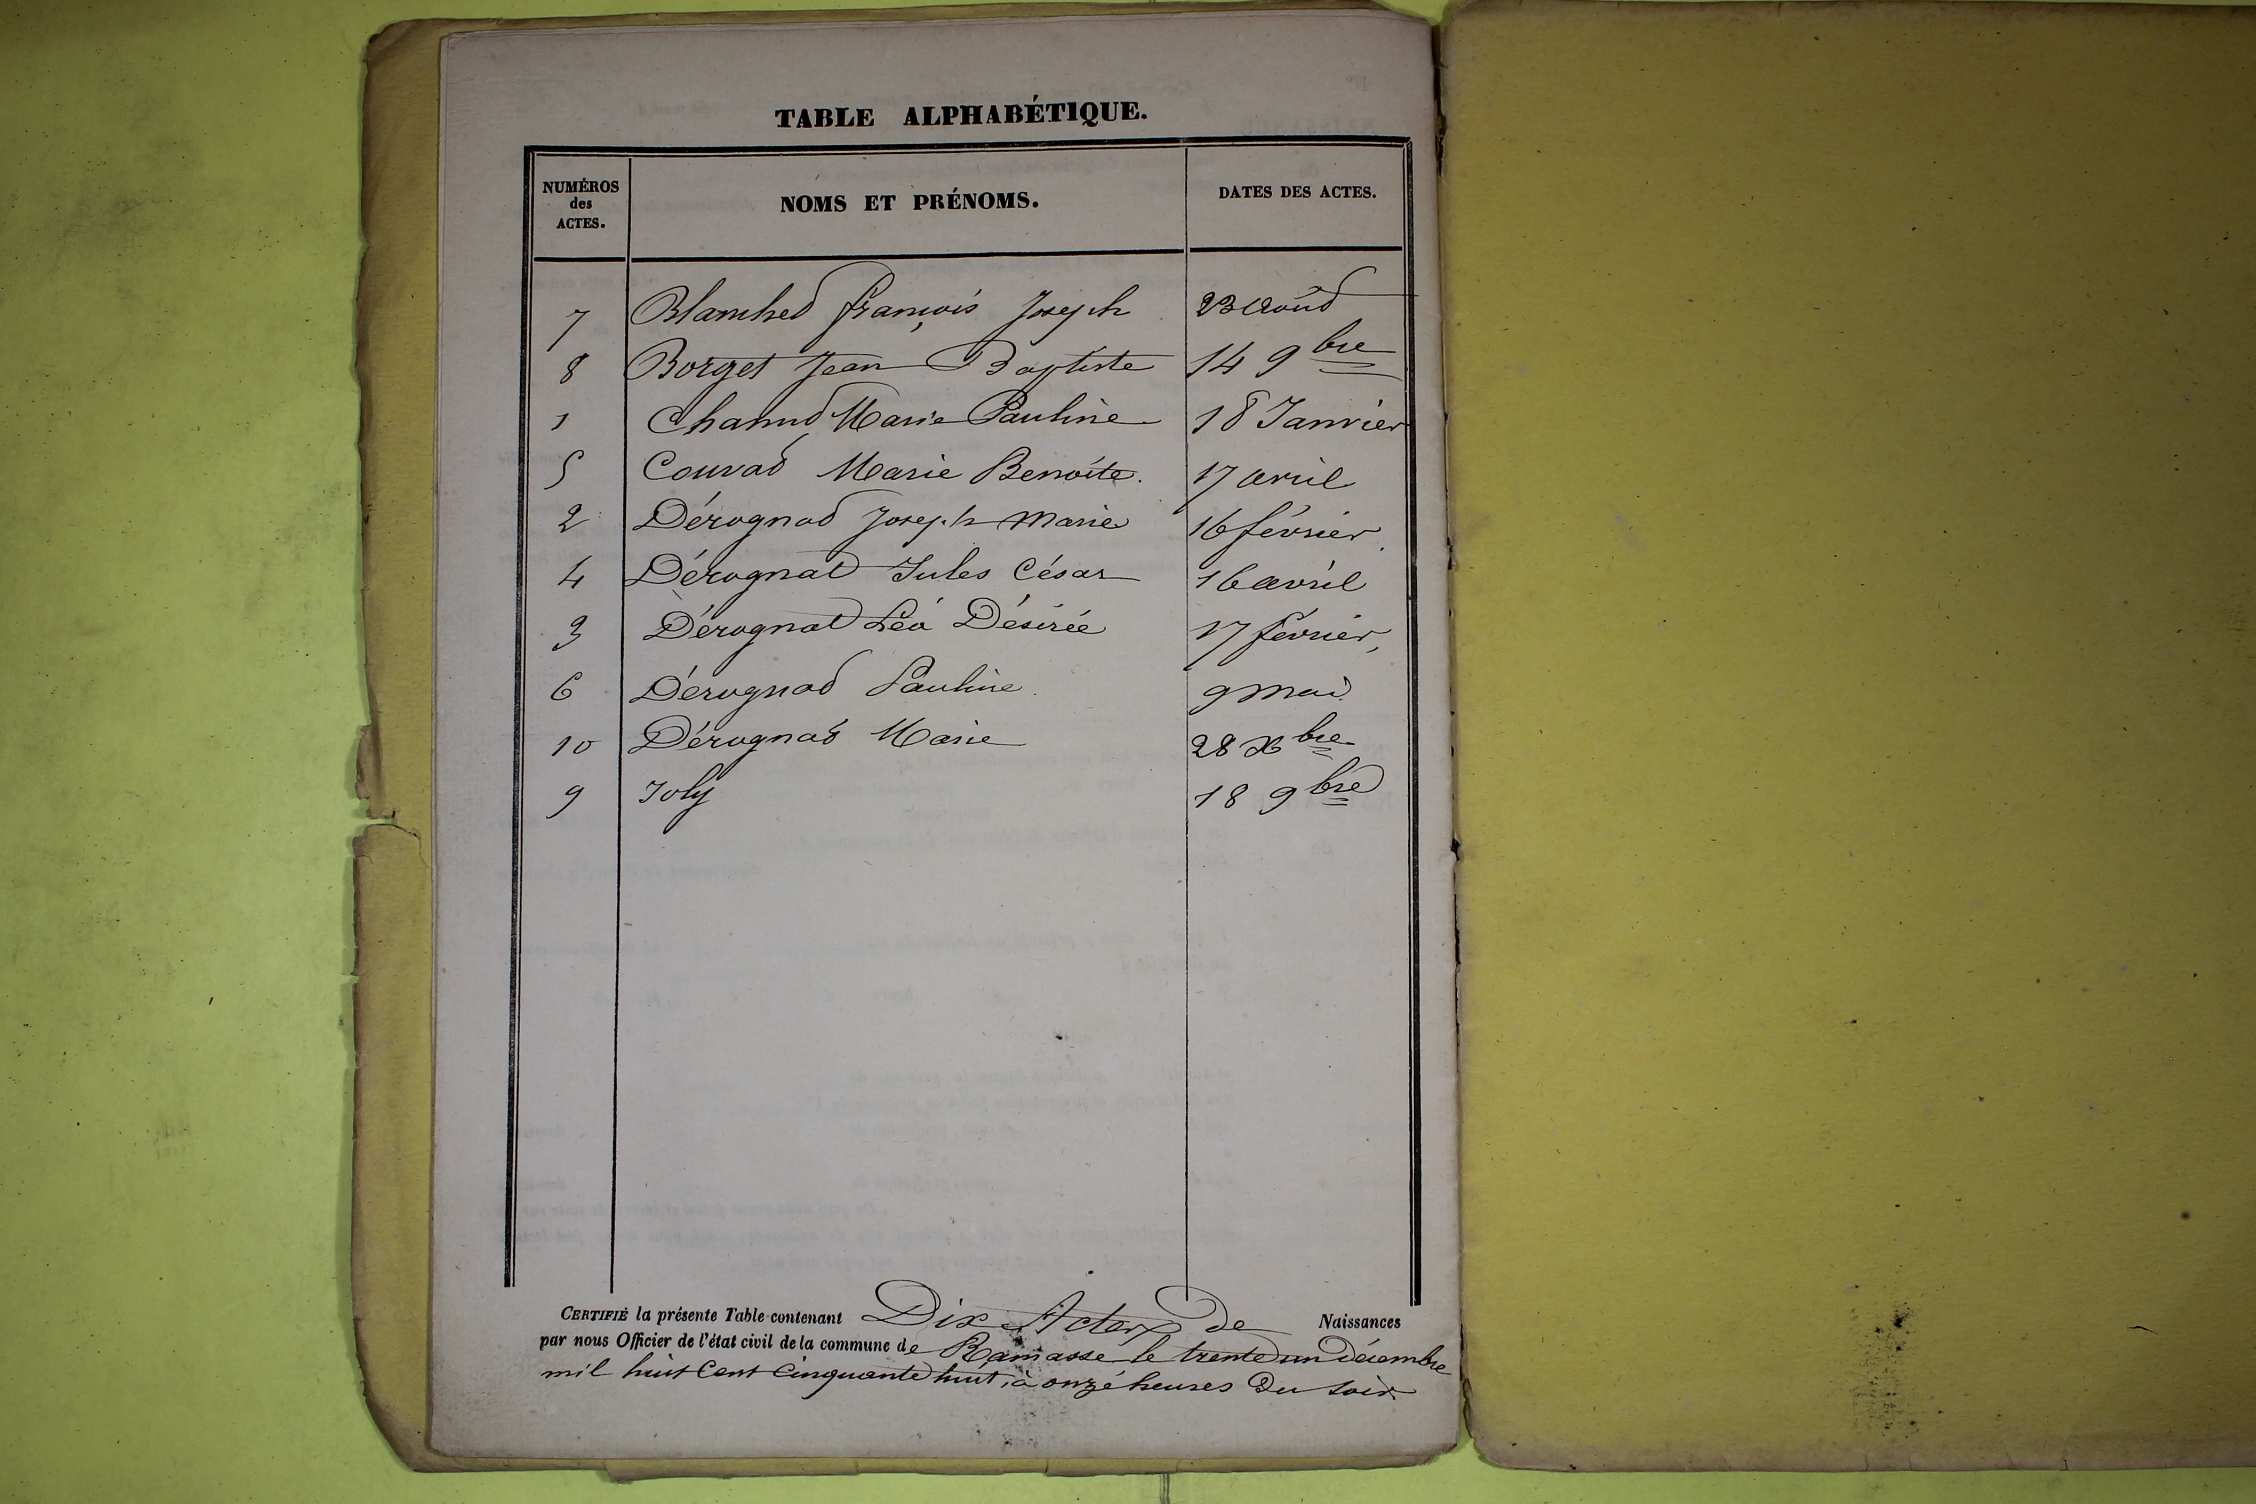 TABLE ALPHABÉTIQUE.
NUMÉROS des ACTES. NOMS ET PRÉNOMS. DATES DES ACTES.
7 Blanchet François Joseph 23 août
8 Borget Jean Baptiste 14 9bre
1 Chanud Marie Pauline 18 Janvier
5 Couvat Marie Benoîte. 17 avril
2 Dérognat Joseph Marie 16 février.
4 Dérognat Jules César 16 avril
3 Dérognat Léa Désirée 17 février,
6 Dérognat Pauline. 9 mai.
10 Dérognat Marie 28 Xbre
9 Joly 18 9bre
CERTIFIÉ la présente Table contenant Dix Actes de Naissances
par nous Officier de l'état civil de la commune de Ramasse le trente un Décembre
mil huit Cent Cinquante huit, à onze heures Du soir